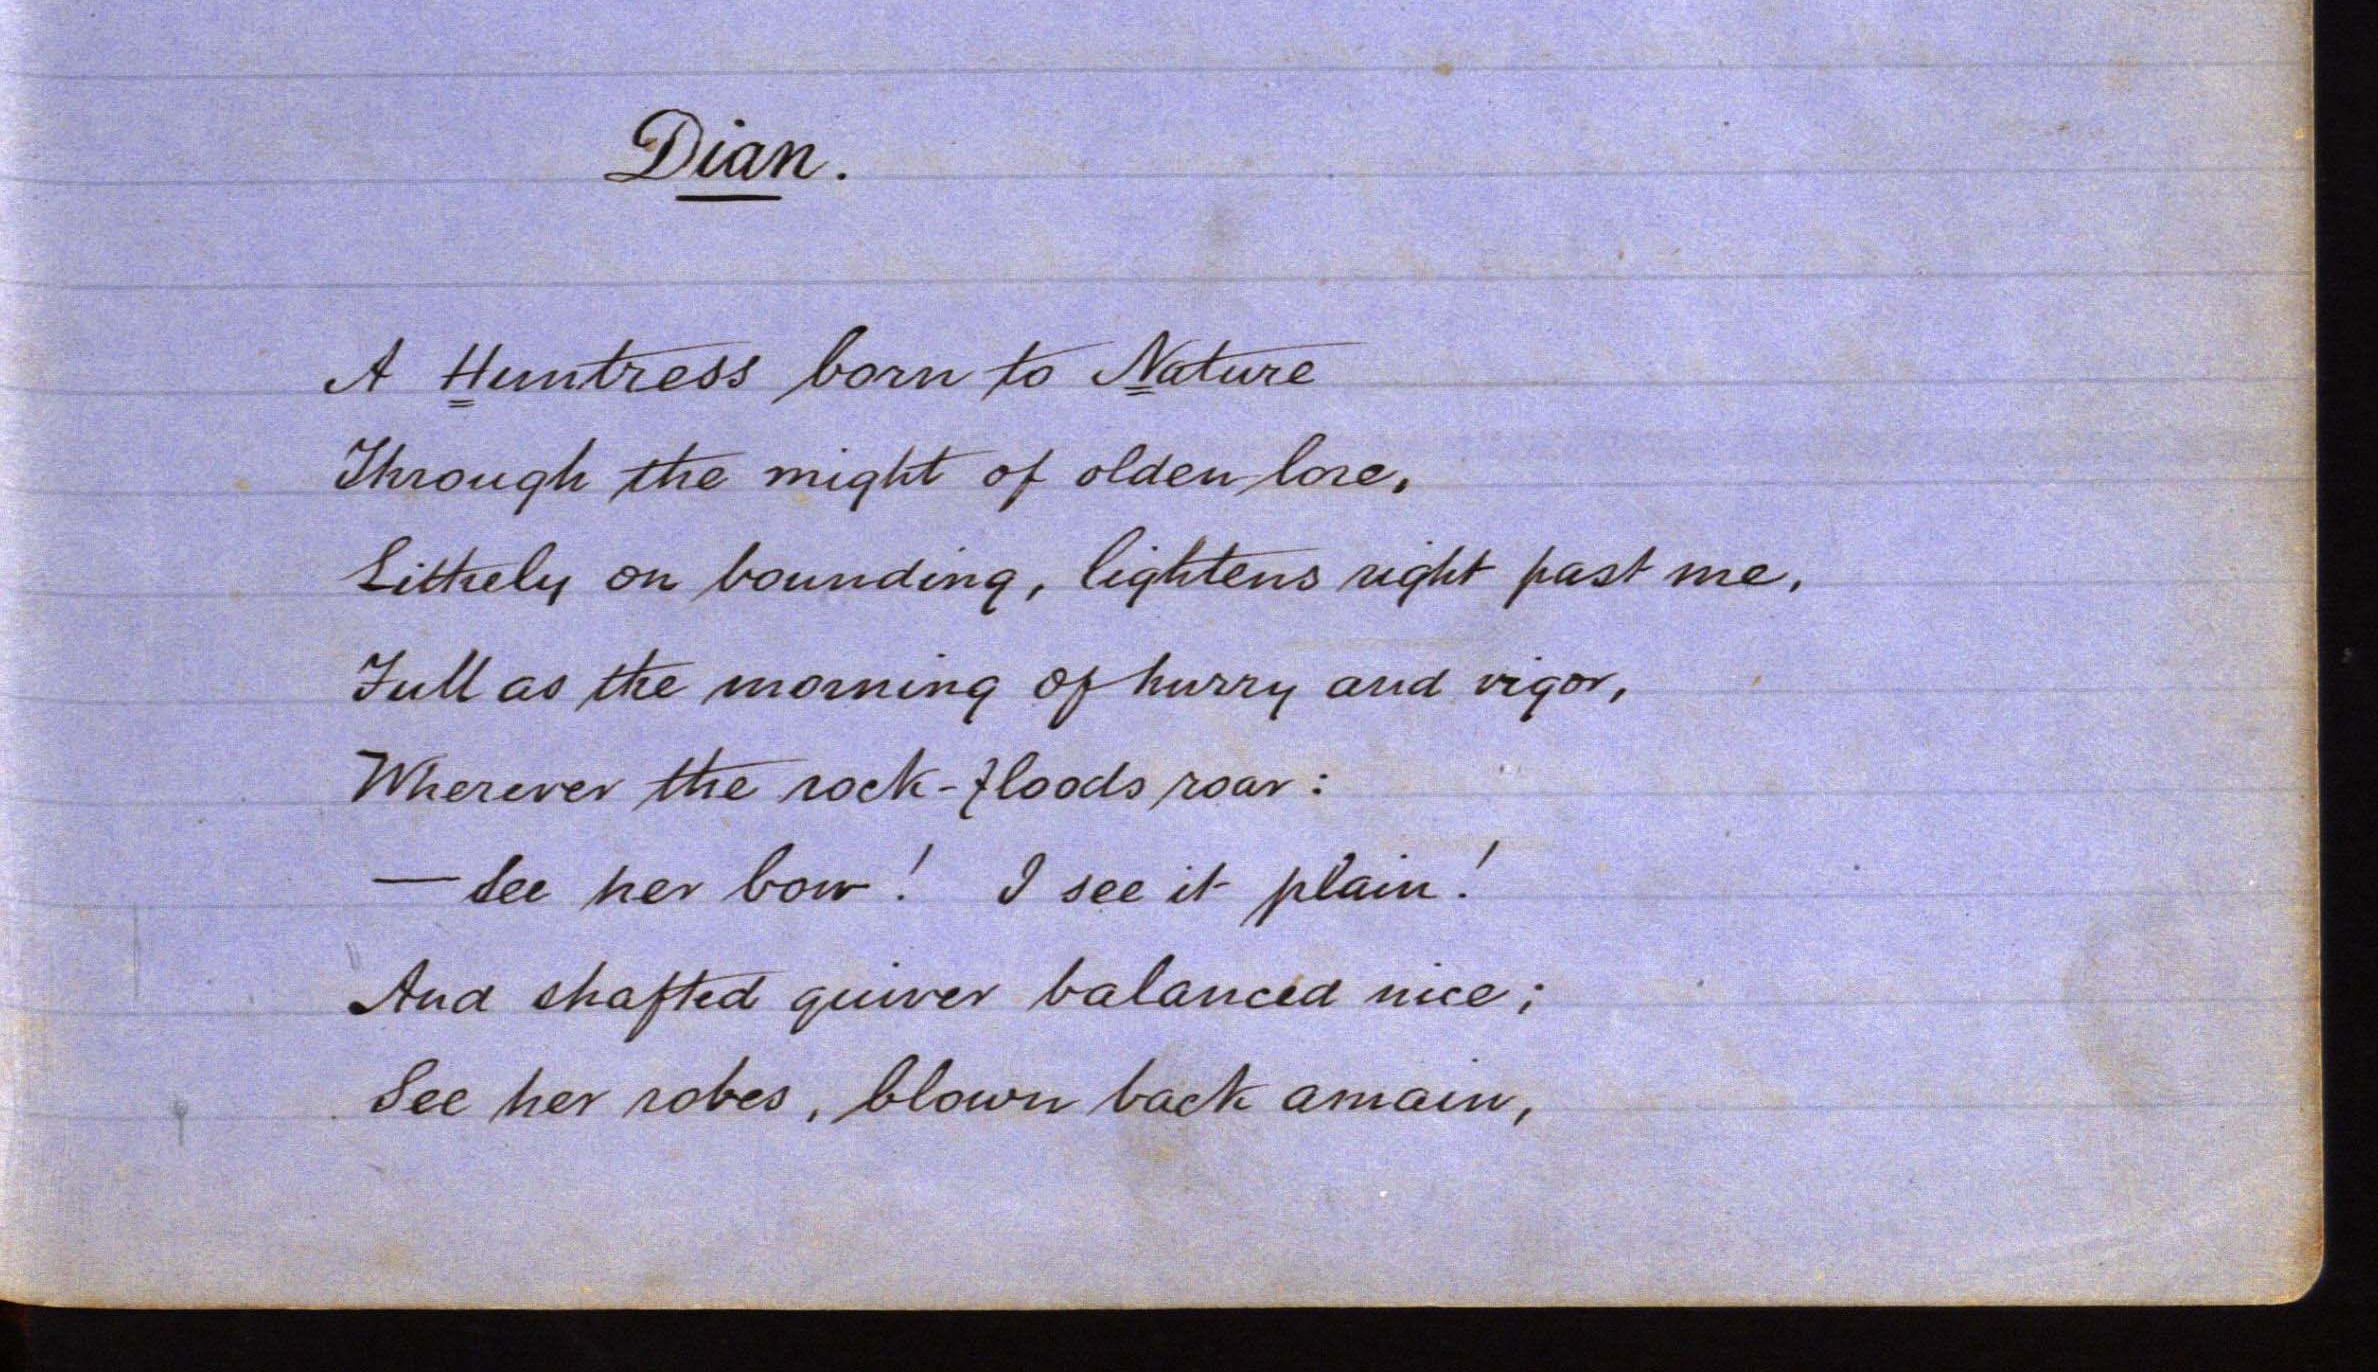 Dian.
A Huntress born to Nature
Through the might of olden lore,
Lithely on bounding, lightens right past me,
Full as the morning of hurry and vigor,
Wherever the rock-floods roar:
— See her bow! I see it plain!
And shafted quiver balanced nice;
See her robes, blown back amain,